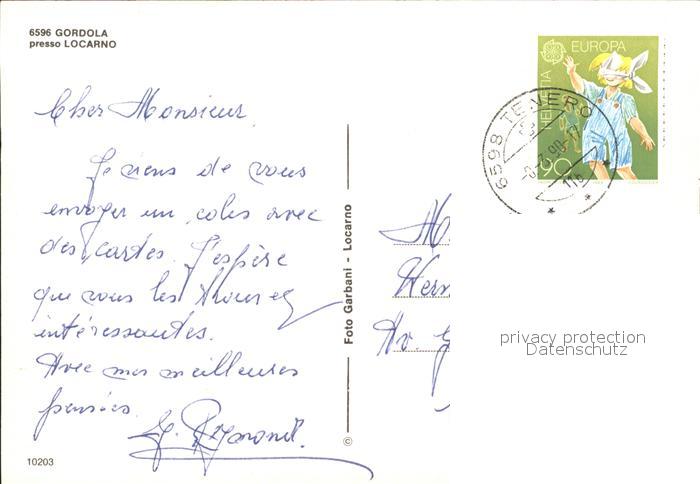 6596 GORDOLA
presso LOCARNO
Cher Monsieur
Je viens de vous
envoyer un colis avec
des cartes. J'espère
que vous les trouvez
intéressantes.
Avec mes meilleures
pensées.
10203
© Foto Garbani - Locarno
EUROPA
HELVETIA
90
6598 TENERO
M
Her
Av. G
privacy protection
Datenschutz